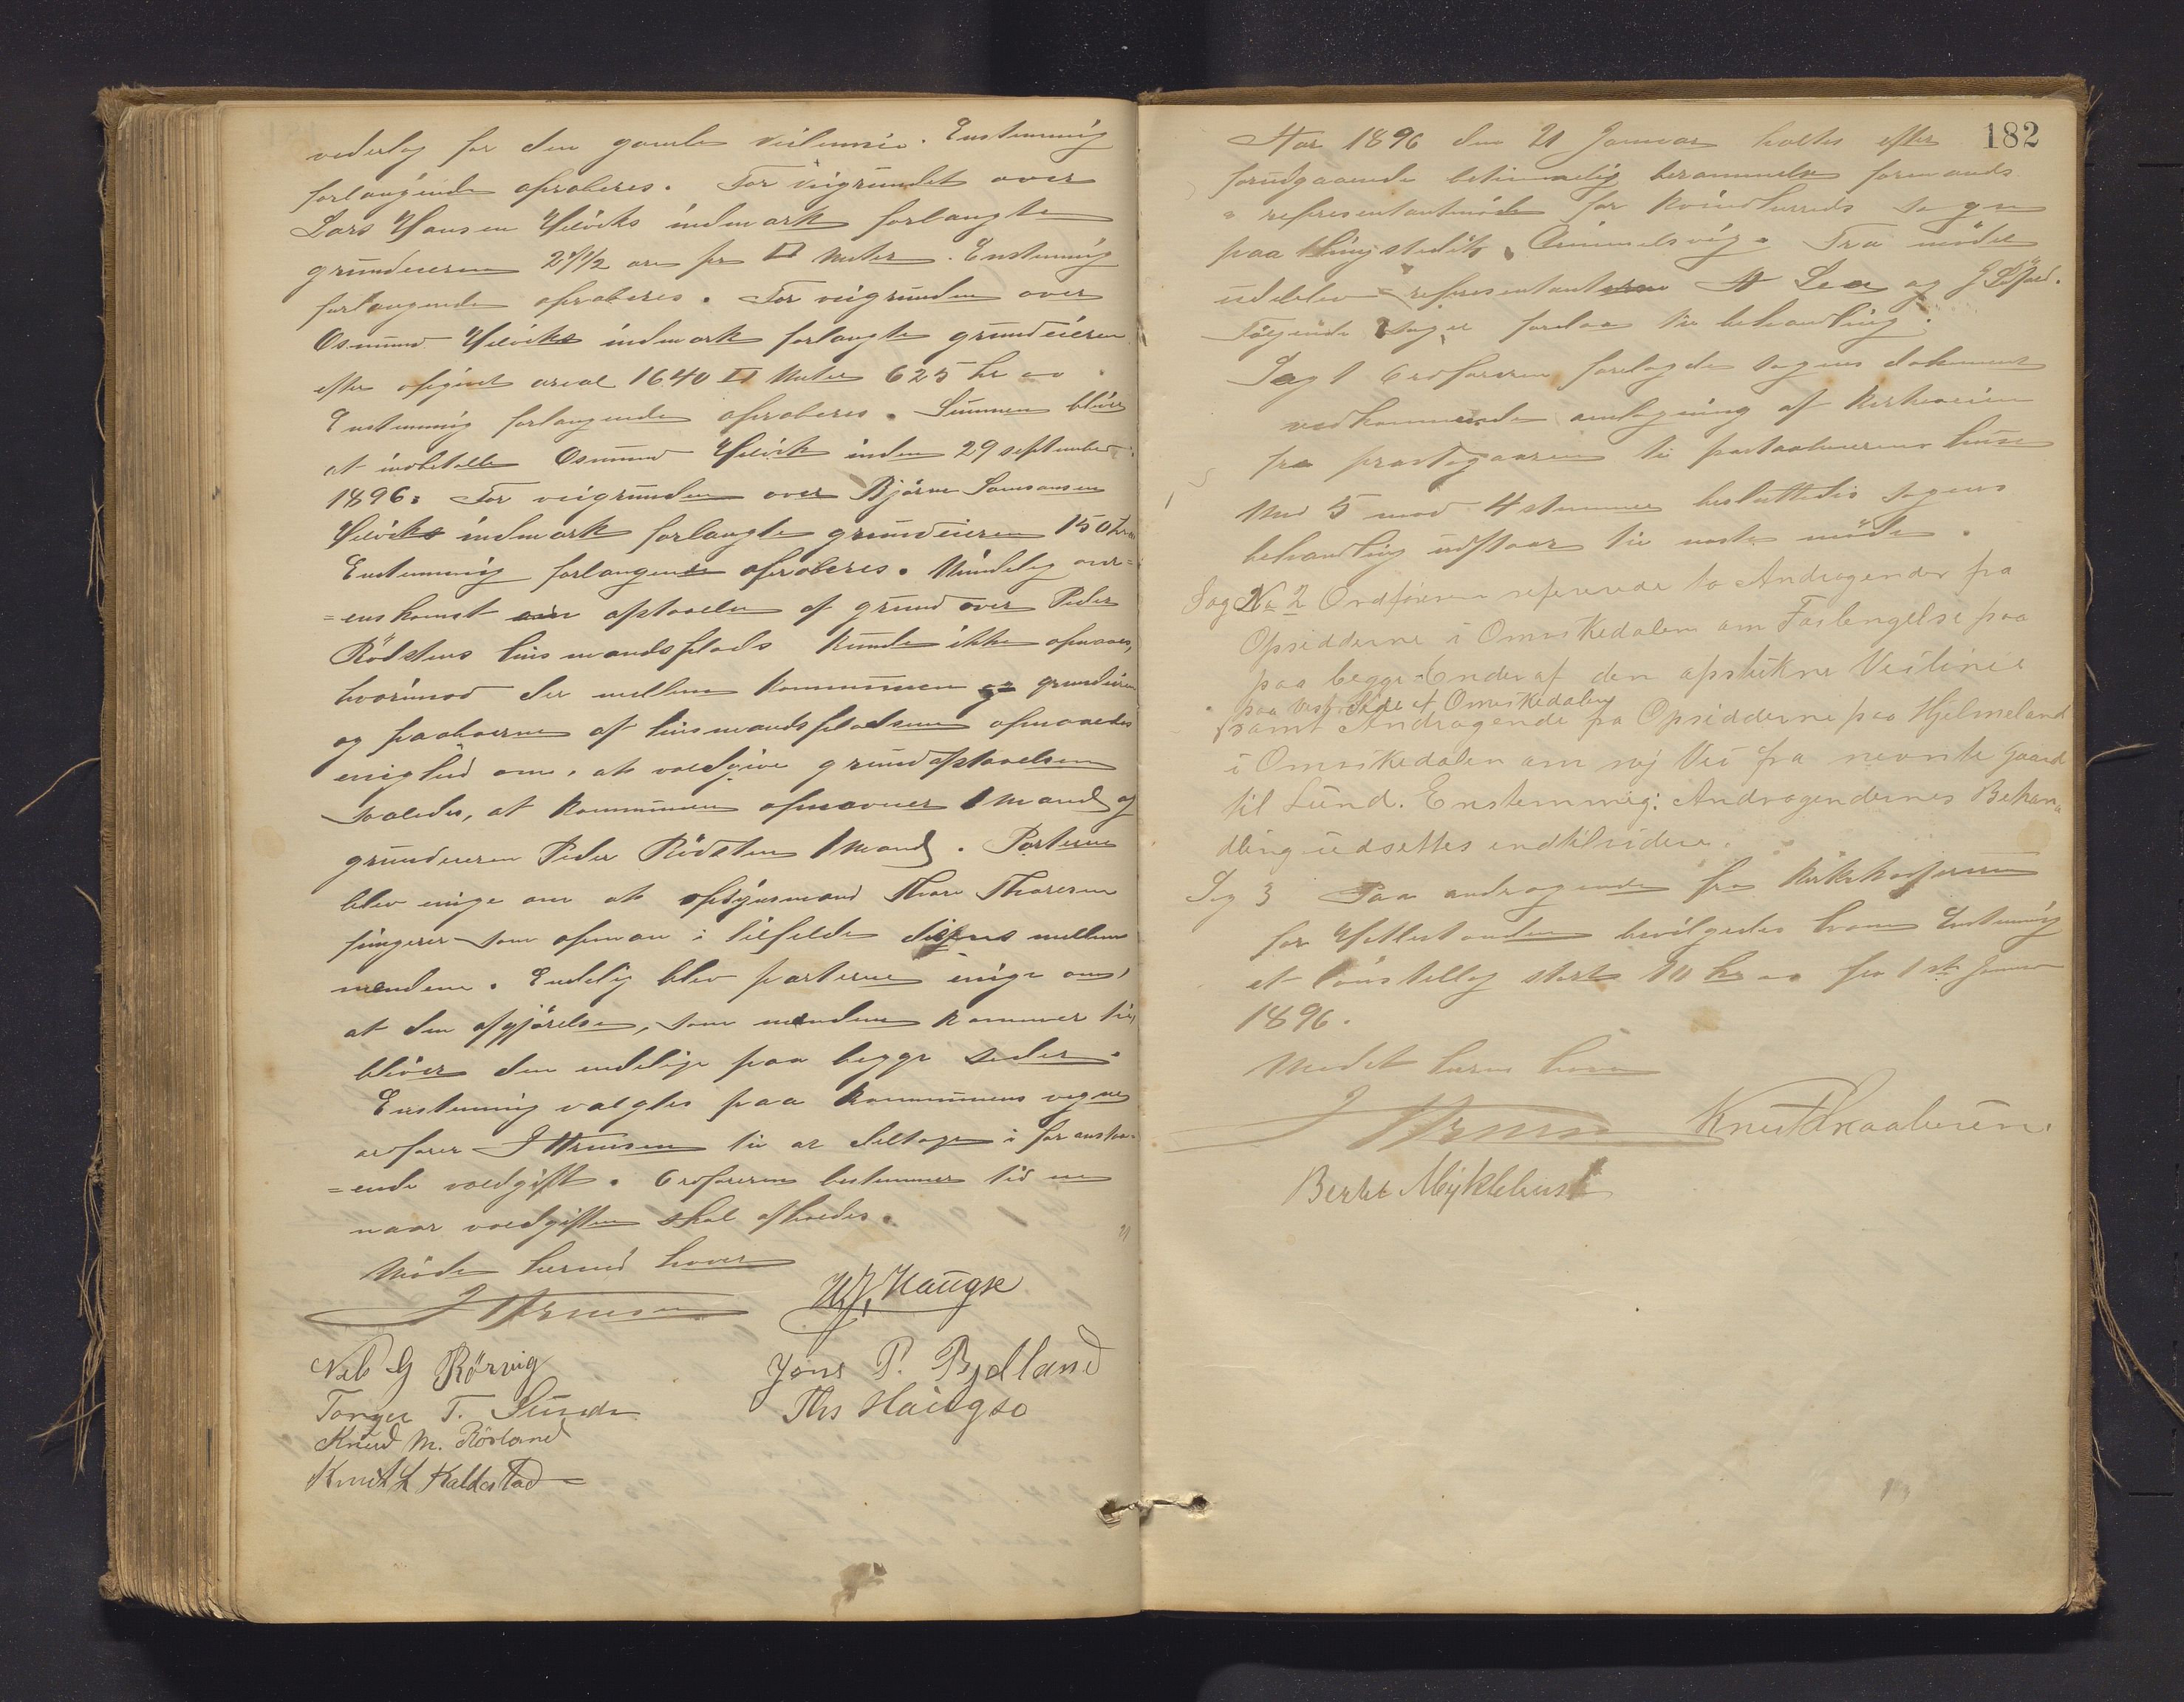 vederlag for den gamle veilinie. Enstemmig
forlangende aproberes. For veigrundet over
Lars Hansen Helviks indmark forlangte
grundeieren 27½ øre pr □ Meter. Enstemmig
forlangende aproberes. For veigrunden over
Osmund Helviks indmark forlangte grundeieren
efter opgivet areal 1640 □ Meter 625 kr
Enstemmig forlangende aproberes. Summen bliver
at indbetale Osmund Helvik inden 29 september
1896. For veigrunden over Bjørne Samsonsen
Helviks indmark forlangte grundeieren 150 kr
Enstemmig forlangende aproberes. Mindelig over=
=enskomst om afstaaelse af grund over Peder
Rödstens husmandsplads kunde ikke opnaaes,
hvorimod der mellem kommunen og grundeieren
og paaboerne af husmandspladsen opnaaedes
enighed om, at voldgive grundafstaaelsen
saaledes, at kommunen opnævner 1 Mand og
grundeieren Peder Rödsten 1 Mand. Parterne
blev enige om at opsynsmand Thore Thoresen
fungerer som opman i tilfelde dispens mellem
mændene. Endelig blev parterne enige om,
at den afgjörelse, som mændene kommer til,
bliver den endelige paa begge sider.
Enstemmig valgtes paa kommunens vegne
ordfører J Hrusen til at deltage i foranstaa=
=ende voldgift. Ordføreren bestemmer tid
naar voldgiften skal afholdes.
Möde hermed hævet
H J. Haugse
Nels G Rörvig Jons P. Bjelland
Torger T. Sunde Ths Haugse
Knud M. Rösland
Knut L Kaldestad
182
Aar 1896 den 21 Januar holtes efter
forudgaaende betimmelig berammelse formands
= representantmöde for Kvindherreds sogn
paa thingstedet Ømmelsvig. Fra mödet
udeblev representanterne A Lea og
Fölgende sager forelaa til behandling:
Sag 1 Ordføreren forelagde sagens dokument
vedkommende omlegning af kirkeveien
fra prestegaarden til postaabnerens huse
Med 5 mod 4 stemmer besluttedes sagens
behandling udstaar til neste möde.
Sag № 2 Ordføreren refererede to Andragender fra
Opsidderne i Omvikedalen om Forlengelse paa
paa begge Ender af den afstukne Veilinie
paa Vestre Side af Omvikedalen
samt Andragende fra Opsidderne paa Hjelmeland
i Omvikedalen om nÿ Vei fra nevnte Gaard
til Sund. Enstemmig: Andragendernes Behan=
dling udsettes indtilvidere.
Sag 3 Paa andragende fra Kirketjeneren
for bevilgedes ham Enstemmig
et lönstillæg stort 10 kr fra 1ste Januar
1896.
Mødet herved hævet
Knut Skaaluren.
Berhe Myklebust